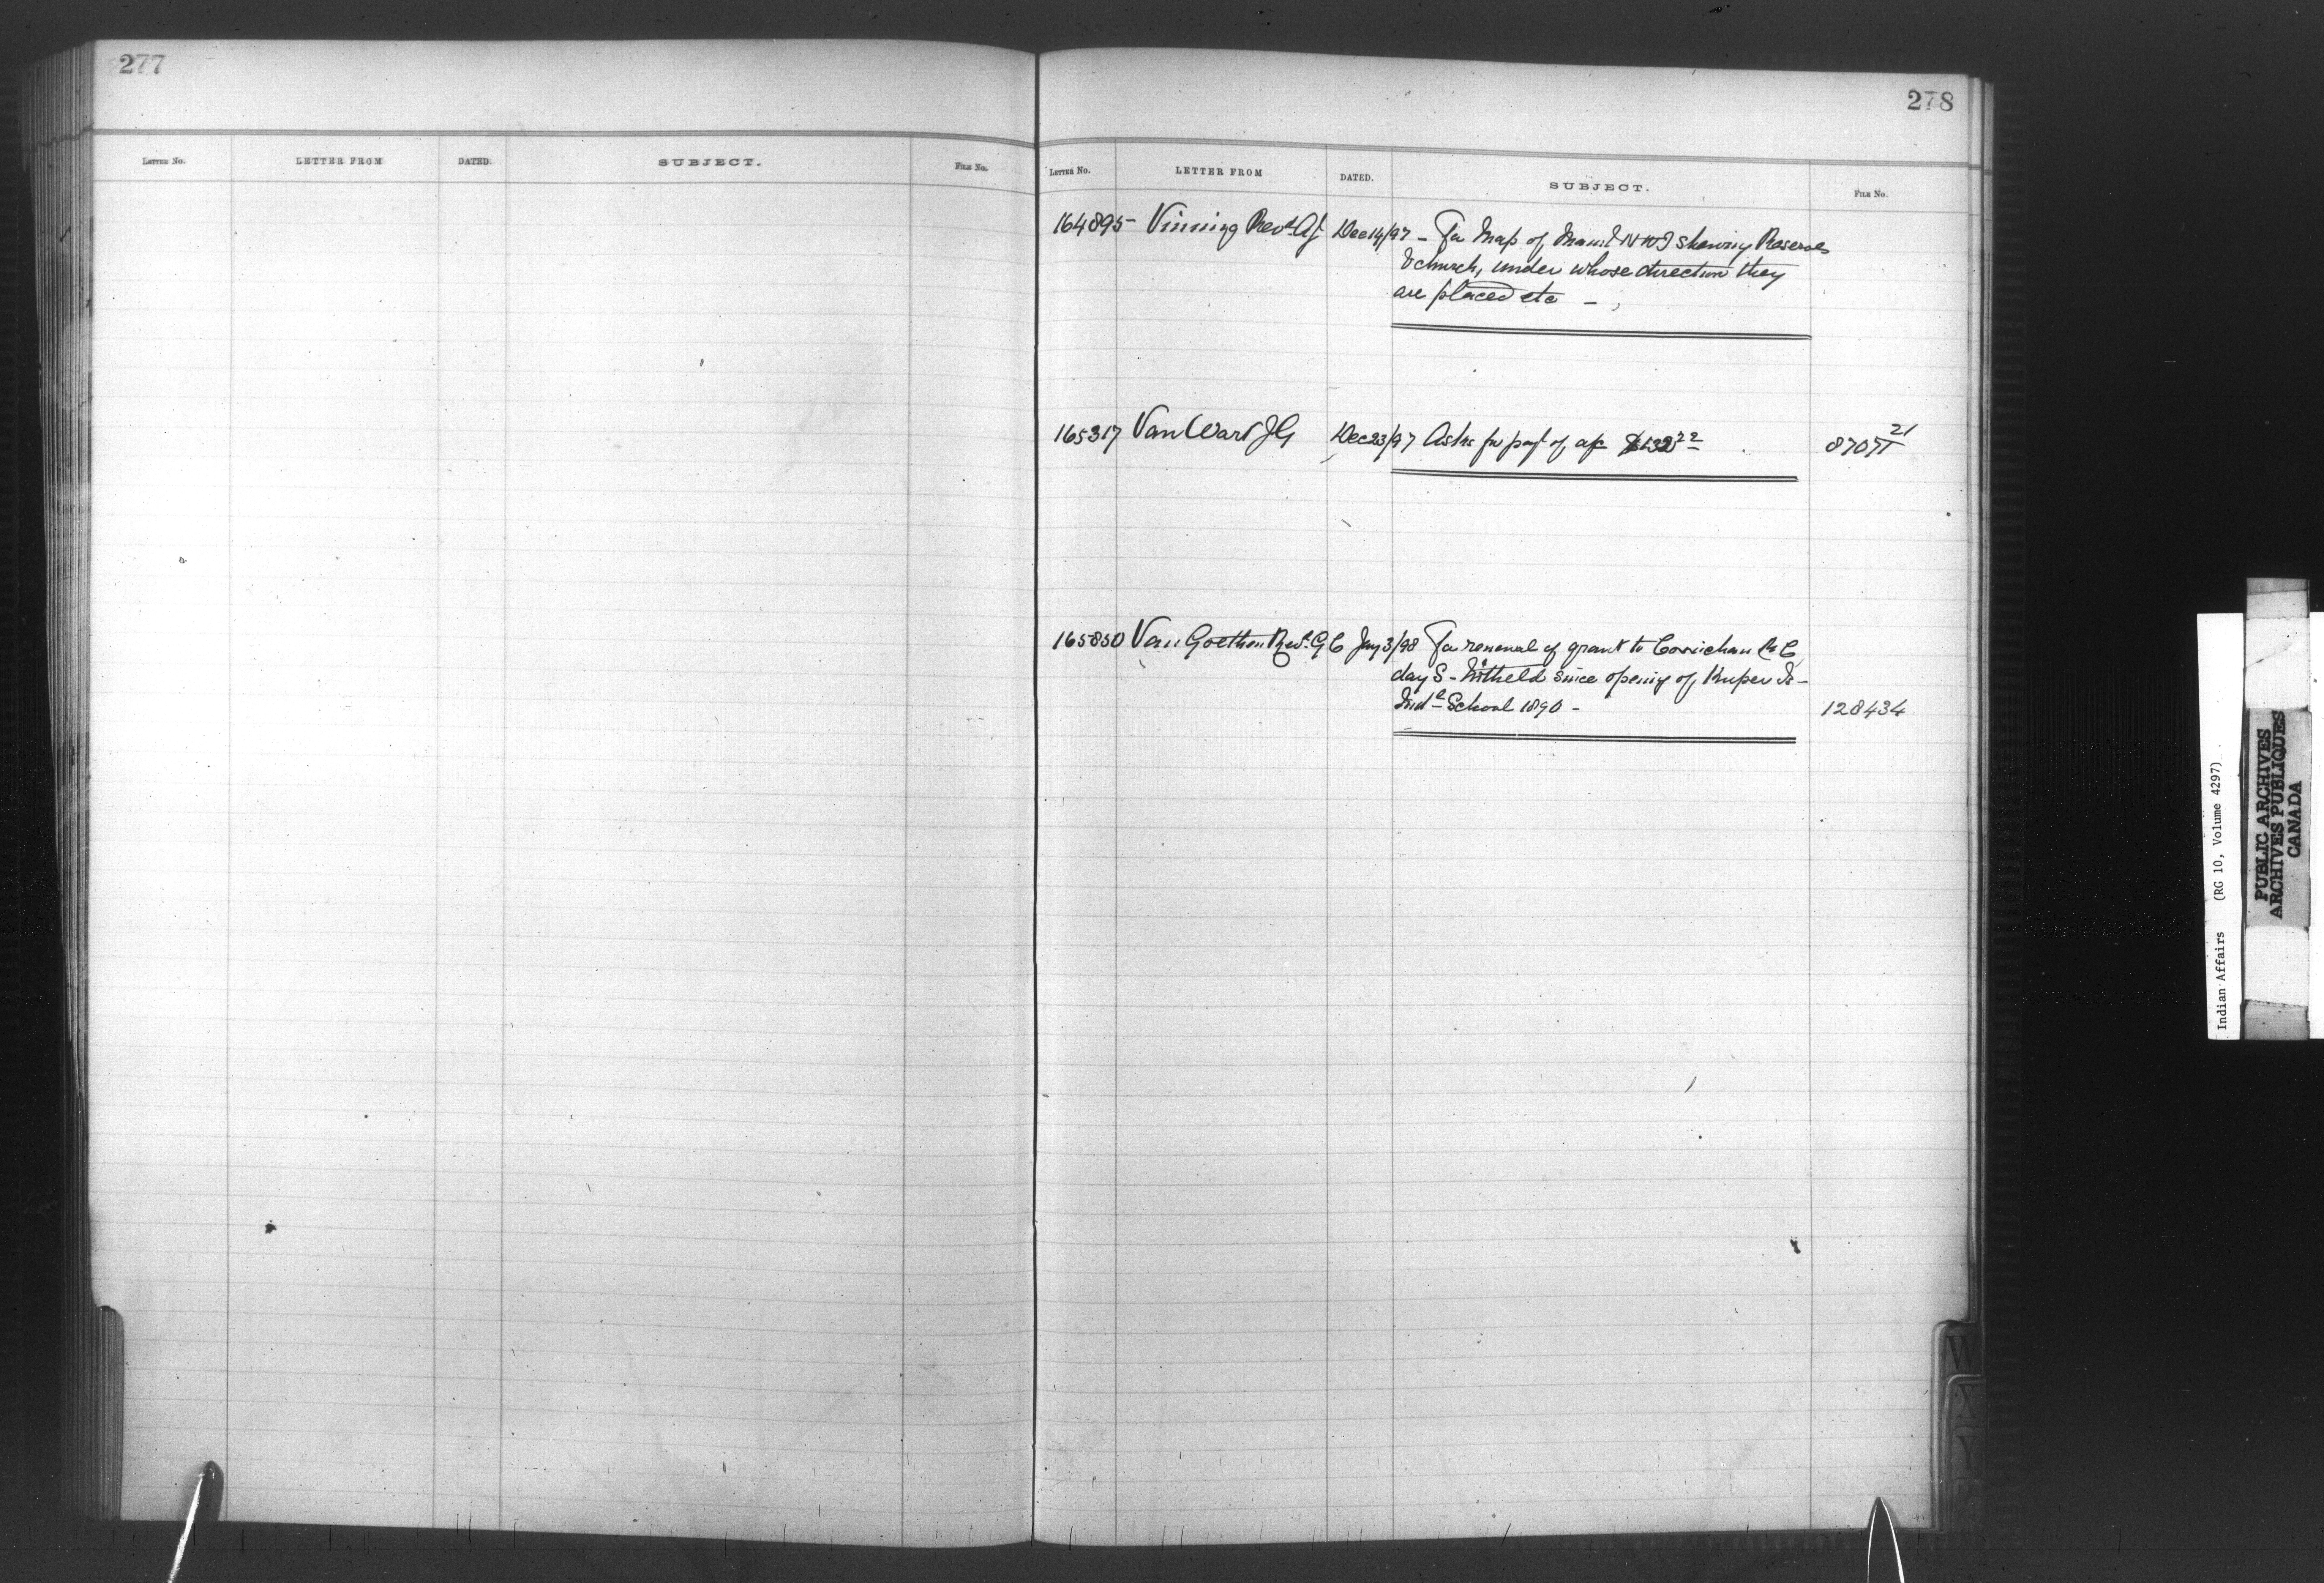 277
LETTER No. LETTER FROM DATED. SUBJECT. FILE No.
278
LETTER No. LETTER FROM DATED. SUBJECT. FILE No.
164895 Vining Revd A J Dec 14/97 - For Map of Man & NWT shewing Reserves
& church, under whose direction they
are placed etc -
165317 Van Wart J G Dec 23/97 Asks for payt of a/c 87071 21
165850 Van Goethem Revd G C Jany 3/98 For renewal of grant to Cowichan R C
day S - Witheld since opening of Kuper Is -
Indl School 1890 - 128434
W
X
Y
Indian Affairs (RG 10, Volume 4297)
PUBLIC ARCHIVES
ARCHIVES PUBLIQUES
CANADA